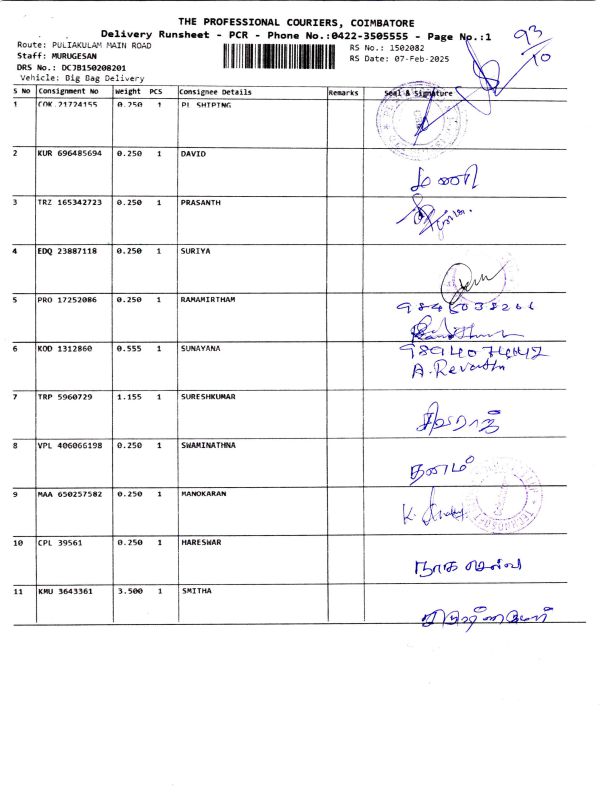 THE PROFESSIONAL COURIERS, COIMBATORE
Delivery Runsheet - PCR - Phone No.:0422-3505555 - Page No.:1
93
10
Route: PULIAKULAM MAIN ROAD
RS No.: 1502082
Staff: MURUGESAN
RS Date: 07-Feb-2025
DRS No.: DCJB150208201
Vehicle: Big Bag Delivery
S No Consignment No Weight PCS Consignee Details Remarks Seal & Signature
1 COK 21724155 0.250 1 PL SHIPING
2 KUR 696485694 0.250 1 DAVID
3 TRZ 165342723 0.250 1 PRASANTH
4 EDQ 23887118 0.250 1 SURIYA
5 PRO 17252086 0.250 1 RAMAMIRTHAM
6 KOD 1312860 0.555 1 SUNAYANA
A. Revathi
7 TRP 5960729 1.155 1 SURESHKUMAR
8 VPL 406066198 0.250 1 SWAMINATHNA தனம்
9 MAA 650257582 0.250 1 MANOKARAN K.
10 CPL 39561 0.250 1 HARESWAR நாக செல்வி
11 KMU 3643361 3.500 1 SMITHA